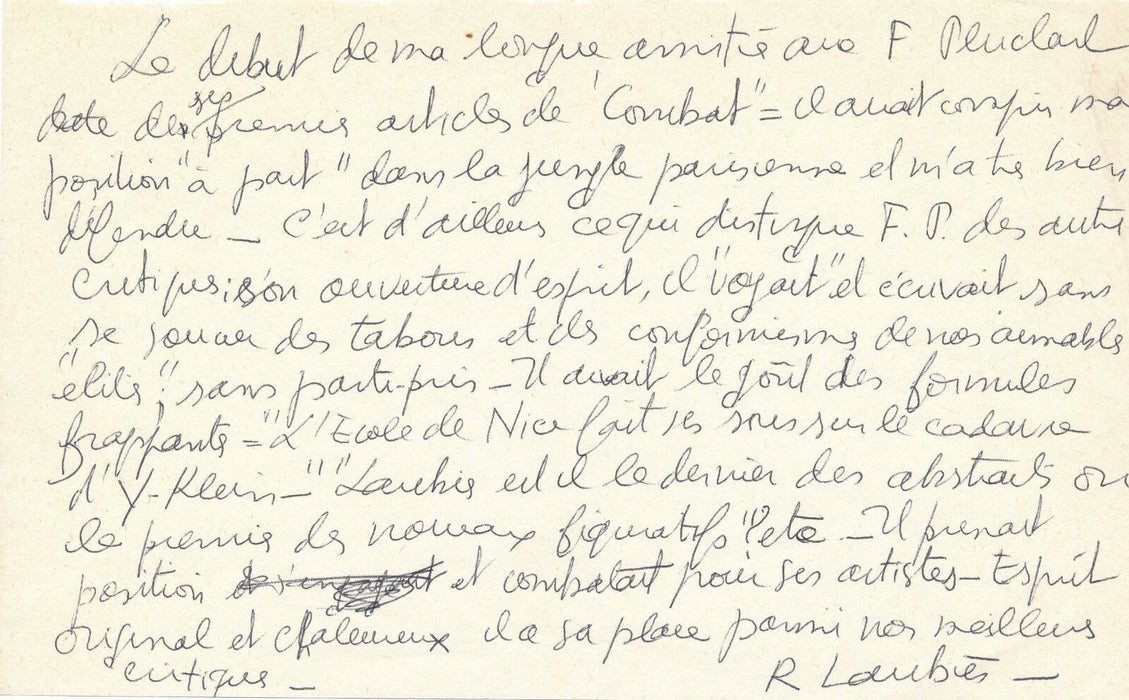 Le début de ma longue amitié avec F. Pluchart
date de ses premiers articles de "Combat" = il avait compris ma
position "à part" dans la jungle parisienne et m'a très bien
défendu _ C'est d'ailleurs ce qui distingue F. P. des autres
critiques : son ouverture d'esprit, il "voyait" et écrivait sans
se soucier des tabous et des conformismes de nos aimables
"élites", sans parti-pris _ Il avait le goût des formules
frappantes = "L'Ecole de Nice fait ses sous sur le cadavre
d'Y. Klein _" "Laubiès est il le dernier des abstraits ou
le premier des nouveaux figuratifs"? etc _ Il prenait
position et combattait pour ses artistes _ Esprit
original et chaleureux il a sa place parmi nos meilleurs
critiques _
R Laubiès _